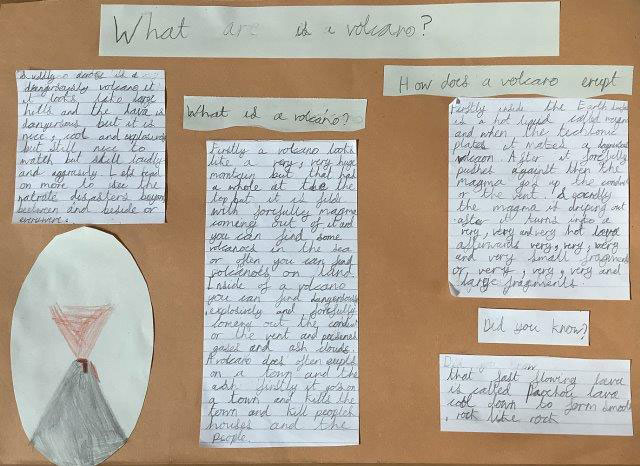 What are is a volcano?
dangerously volcano it
it looks like large
hills and the lava is
dangerous but it is
nice, cool and explosively
but still nice to
watch but still loudly
and aggrasivly. Lets read
on more to see the
natrale disasters beyond
between and beside or
What is a volcano?
Firstly a volcano looks
like a very, very huge
montain but that has
a whole at the the
top but it is filds
with forsfulley magma
comeing out of it and
you can find some
volcanoes in the sea
or often you can find
volcanoes on land.
Inside of a volcano
you can find dangerously
explosively and forsfully
comeing out the conduit
or the vent and poisenes
gases and ash clouds.
A volcano does often erupts
on a town and the
ash firstly it gos on
a town and kills the
town and kill people's
houses and the
people.
How does a volcano erupt
Firstly inside the Earth
is a hot liquid called magma
and when the techtonic
plates it makes a dangerous
After it forcefully
pushes against then the
magma gos up the conduit
or the vent. & specdly
the magma it
after it turns into a
very, very and very hot lava
afterwards very, very, very
and very small fragments
or, very, very, very and
large fragments.
Did you know?
that fast flowing lava
is called lava
cool down to form smooth
rock like rock